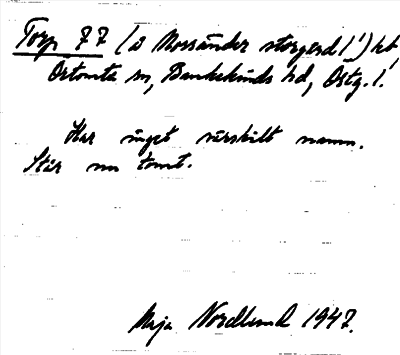 Torp 77 (å Mossänder storgård 1/1) bt,
Örtomta sn, Bankekinds hd, Östg. l.
Har inget särskilt namn.
Står nu tomt.
Maja Nordlund 1947.